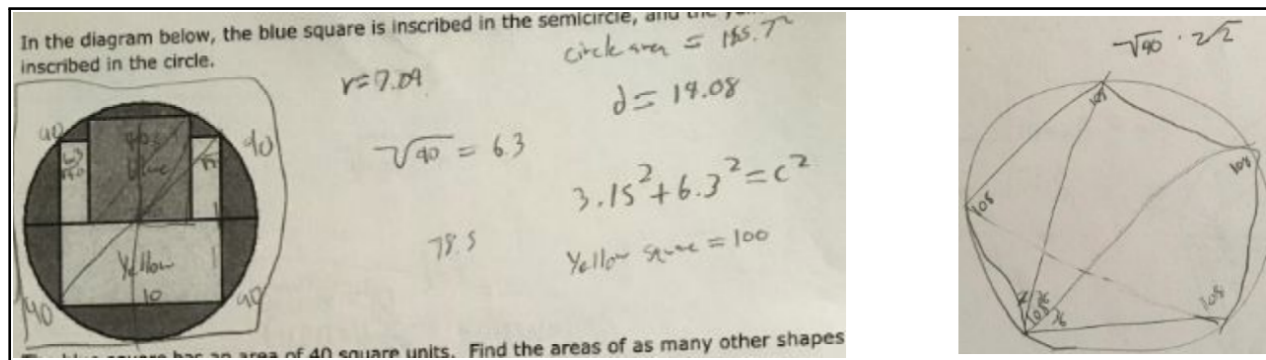 In the diagram below, the blue square is inscribed in the semicircle, and the
inscribed in the circle.
circle area = 155.7
r=7.09
d= 14.08
√40 = 6.3
3.15² + 6.3² = c²
78.5
Yellow square = 100
40
90
blue
90
6.3
√40
Yellow
10
90
90
The blue square has an area of 40 square units. Find the areas of as many other shapes
√90 · 2√2
108
108
108
108
108